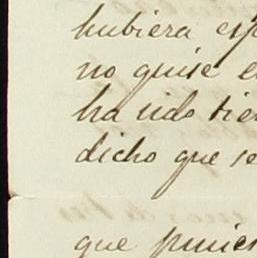 hubiera esp
no quise e
ha sido tie
dicho que se
que pusier